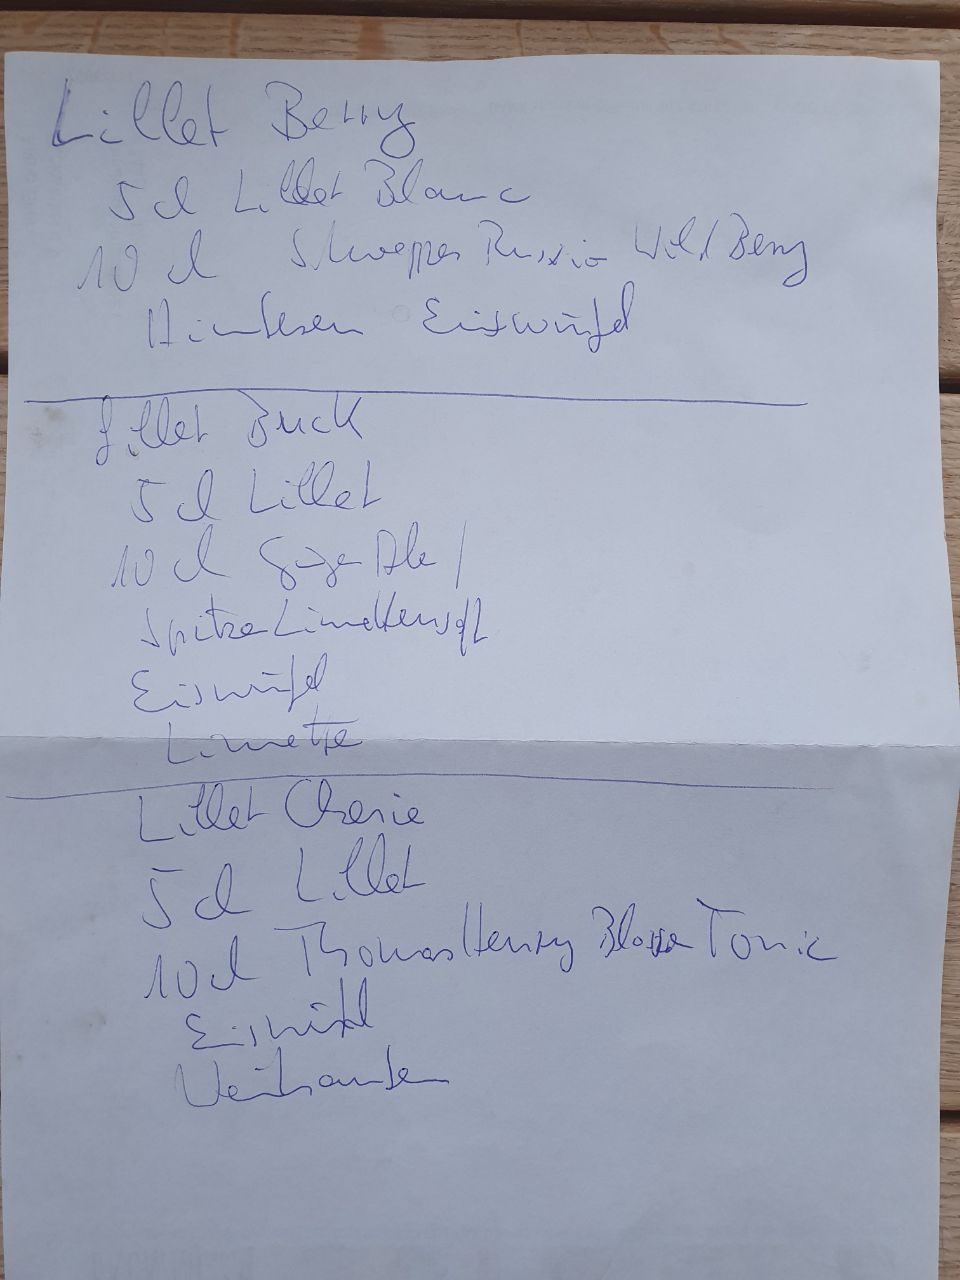 Lillet Berry
5 cl Lillet Blanc
10 cl Schweppes Russian Wild Berry
Himbeeren Eiswürfel
Lillet Buck
5 cl Lillet
10 cl Ginger Ale /
Spritzer Limettensaft
Eiswürfel
Limette
Lillet Cherie
5 cl Lillet
10 cl Thomas Henry Tonic
Eiswürfel
Weintrauben